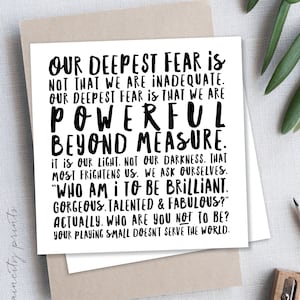 OUR DEEPEST FEAR iS
NOT THAT WE ARE INADEQUATE.
OUR DEEPEST FEAR IS THAT WE ARE
POWERFUL
BEYOND MEASURE.
iT iS OUR LIGHT, NOT OUR DARKNESS, THAT
MOST FRIGHTENS US. WE ASK OURSELVES,
"WHO AM i TO BE BRILLIANT,
GORGEOUS, TALENTED & FABULOUS?"
ACTUALLY, WHO ARE YOU NOT TO BE?
YOUR PLAYING SMALL DOESN'T SERVE THE WORLD.